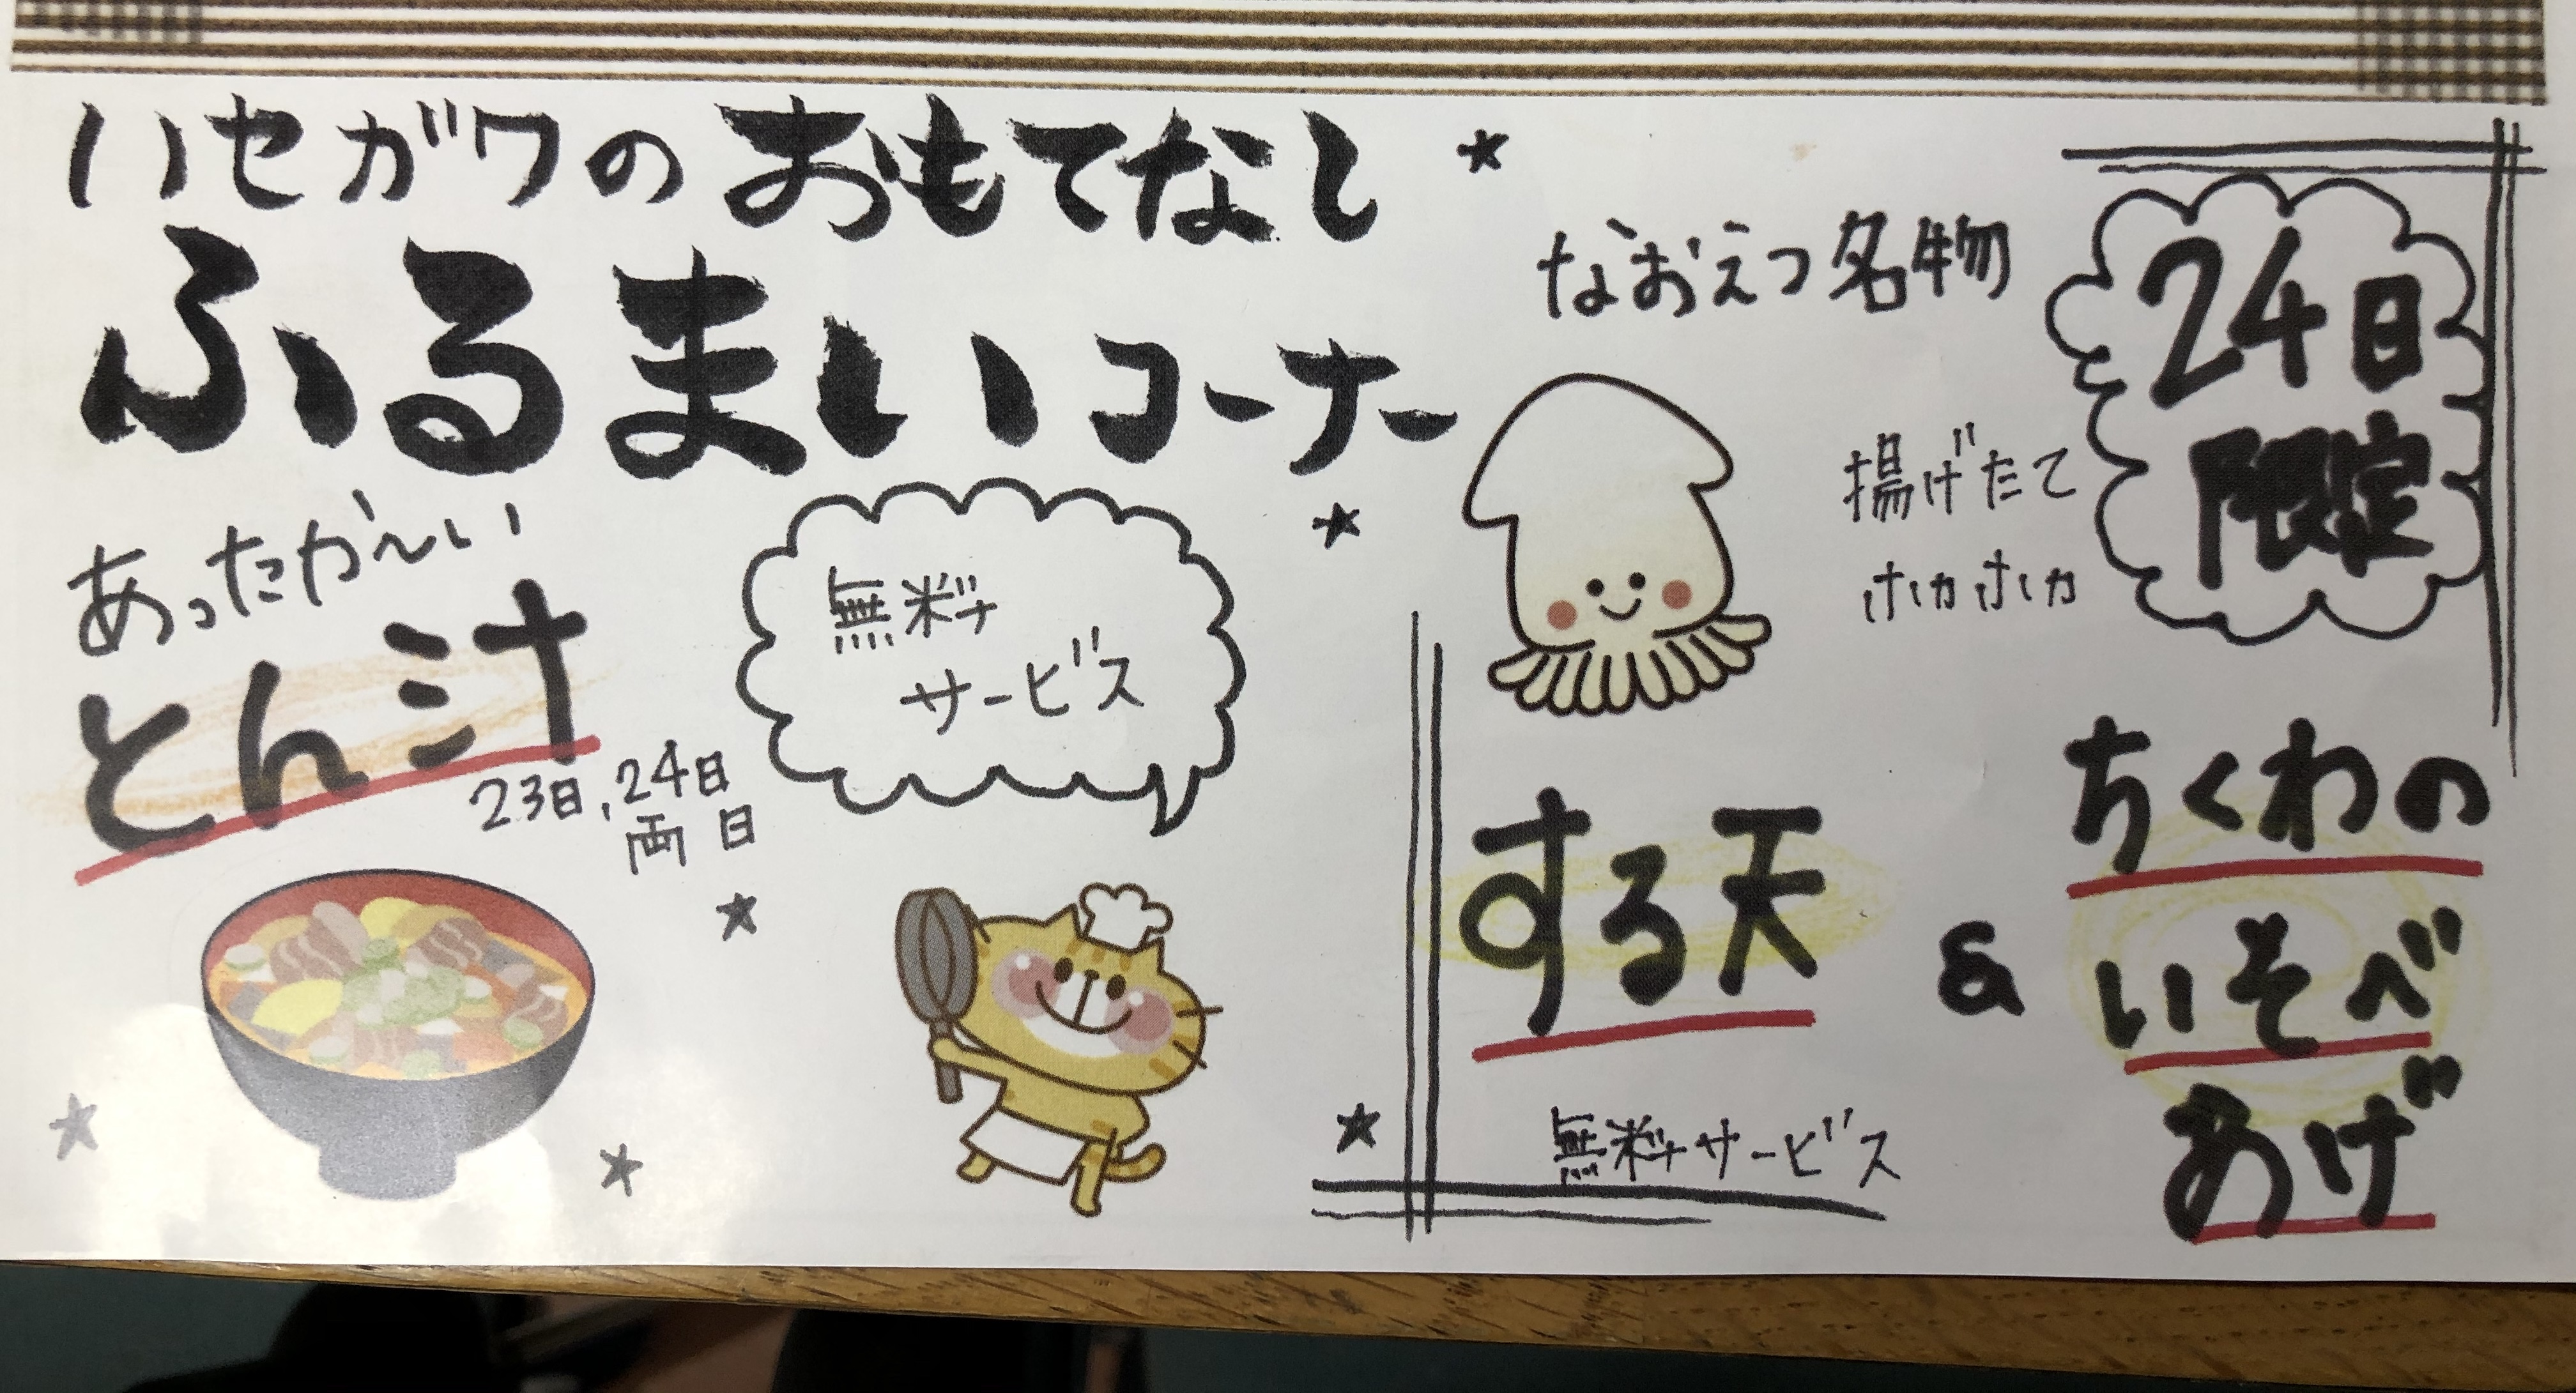 ハセガワのおもてなし
ふるまいコーナー
あったか〜い
とん汁
23日、24日
両日
無料
サービス
なおえつ名物
24日
限定
揚げたて
ホカホカ
する天
&
ちくわの
いそべ
あげ
無料サービス